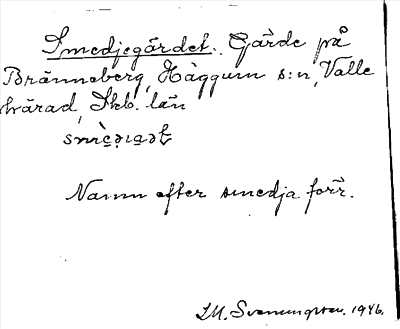 Smedjegärdet. Gärde på
Bränneberg, Häggum s:n, Valle
härad, Skb. län
Namn efter smedja förr.
1946.